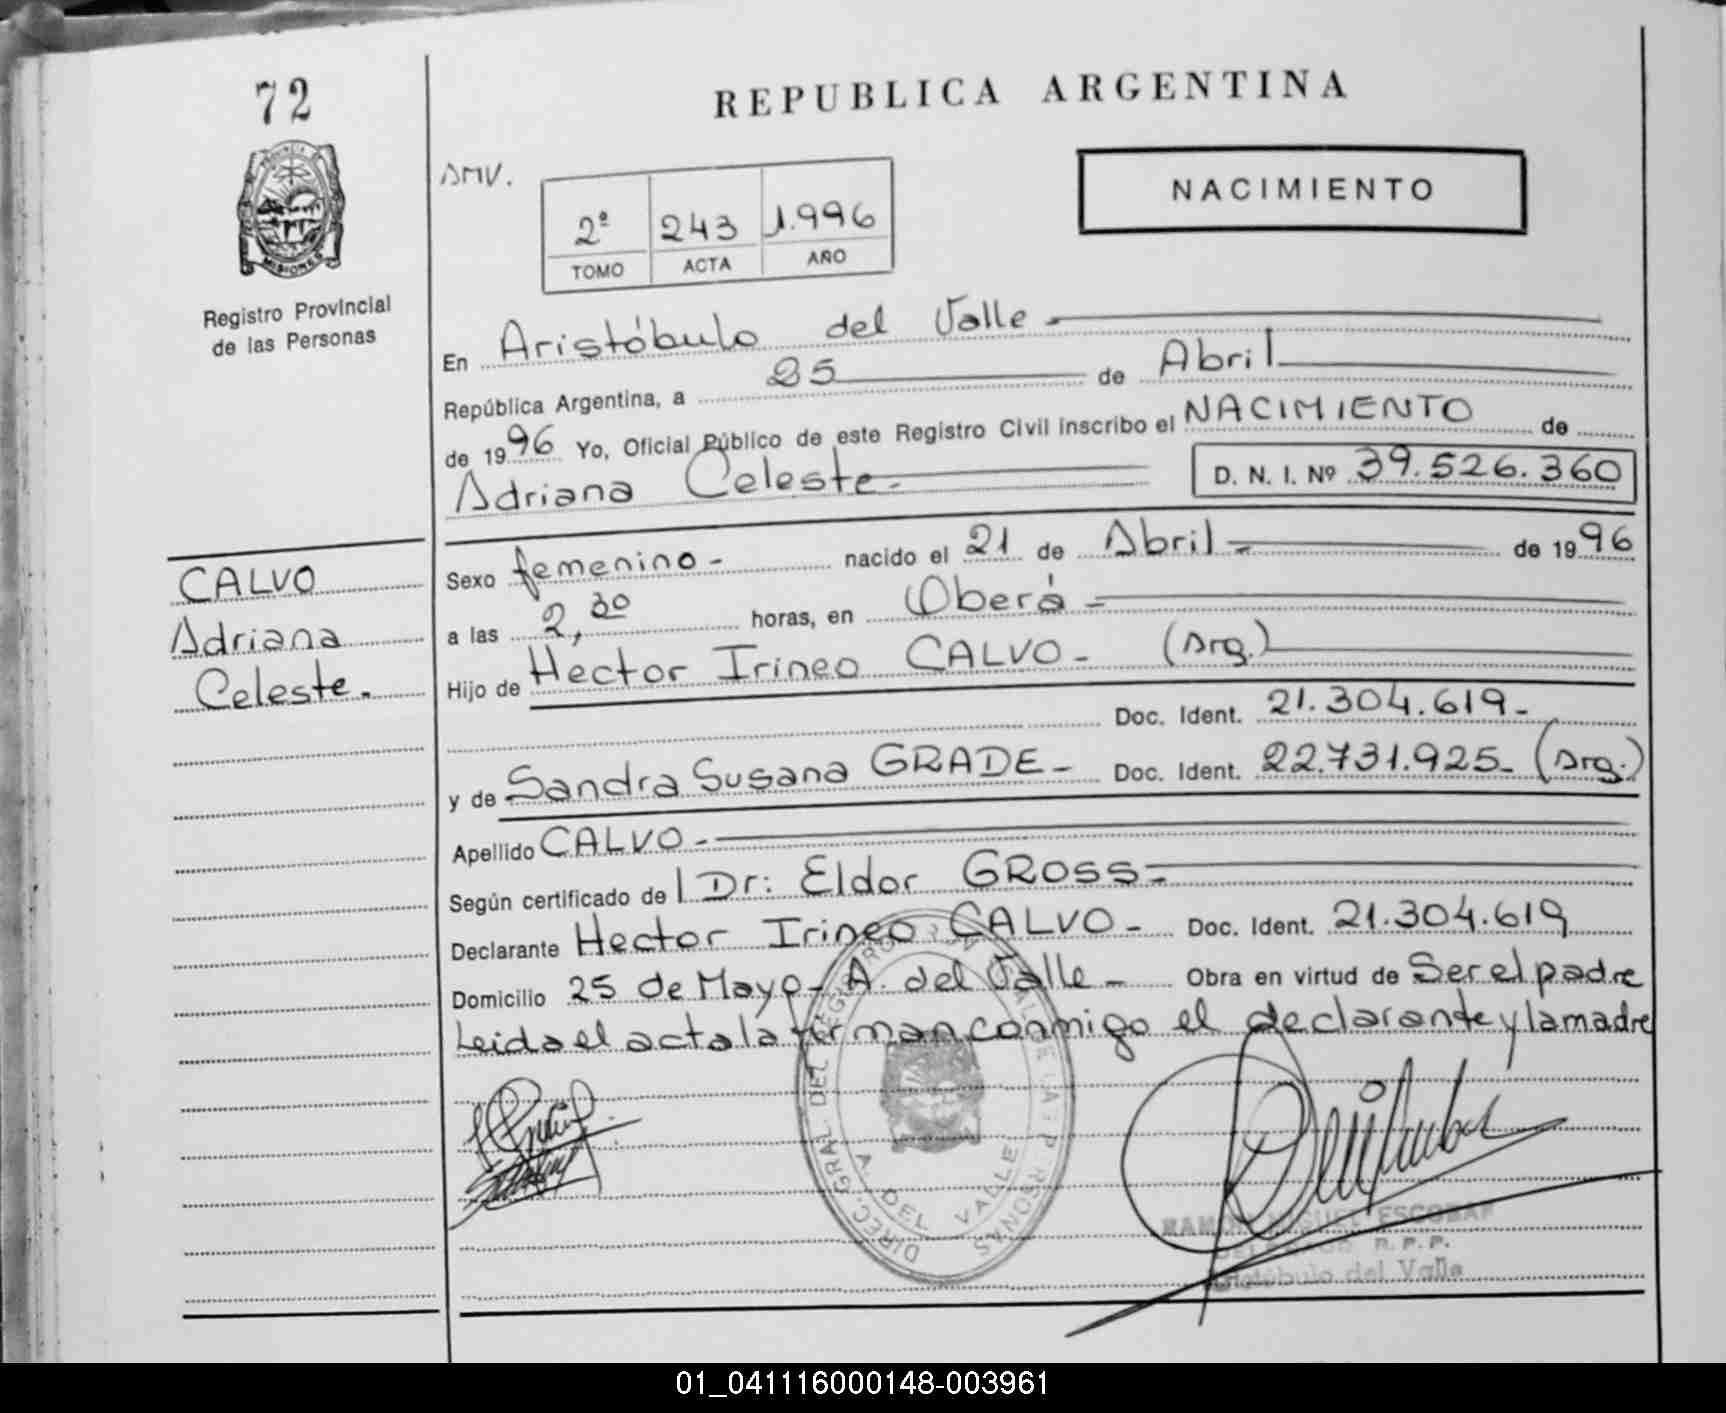 72
REPUBLICA ARGENTINA
PROVINCIA DE
MISIONES
Registro Provincial
de las Personas
AMV.
2º 243 1.996
TOMO ACTA AÑO
NACIMIENTO
En Aristóbulo del Valle
República Argentina, a 25 de Abril
de 1996 Yo, Oficial Público de este Registro Civil inscribo el NACIMIENTO de
Adriana Celeste.- D. N. I. Nº 39.526.360
CALVO
Adriana
Celeste.-
Sexo femenino - nacido el 21 de Abril - de 1996
a las 2,30 horas, en Oberá -
Hijo de Hector Irineo CALVO - (Arg.)
Doc. Ident. 21.304.619 -
y de Sandra Susana GRADE - Doc. Ident. 22.731.925 - (Arg.)
Apellido CALVO -
Según certificado de l Dr: Eldor GROSS -
Declarante Hector Irineo CALVO - Doc. Ident. 21.304.619
Domicilio 25 de Mayo - A. del Valle - Obra en virtud de Ser el padre
Leida el acta la firman conmigo el declarante y la madre
DIREC. GRAL. DEL REGISTRO PROVINCIAL DE LAS PERSONAS
A. DEL VALLE
RAMON MIGUEL ESCOBAR
DELEGADO R.P.P.
Aristóbulo del Valle
01_041116000148-003961